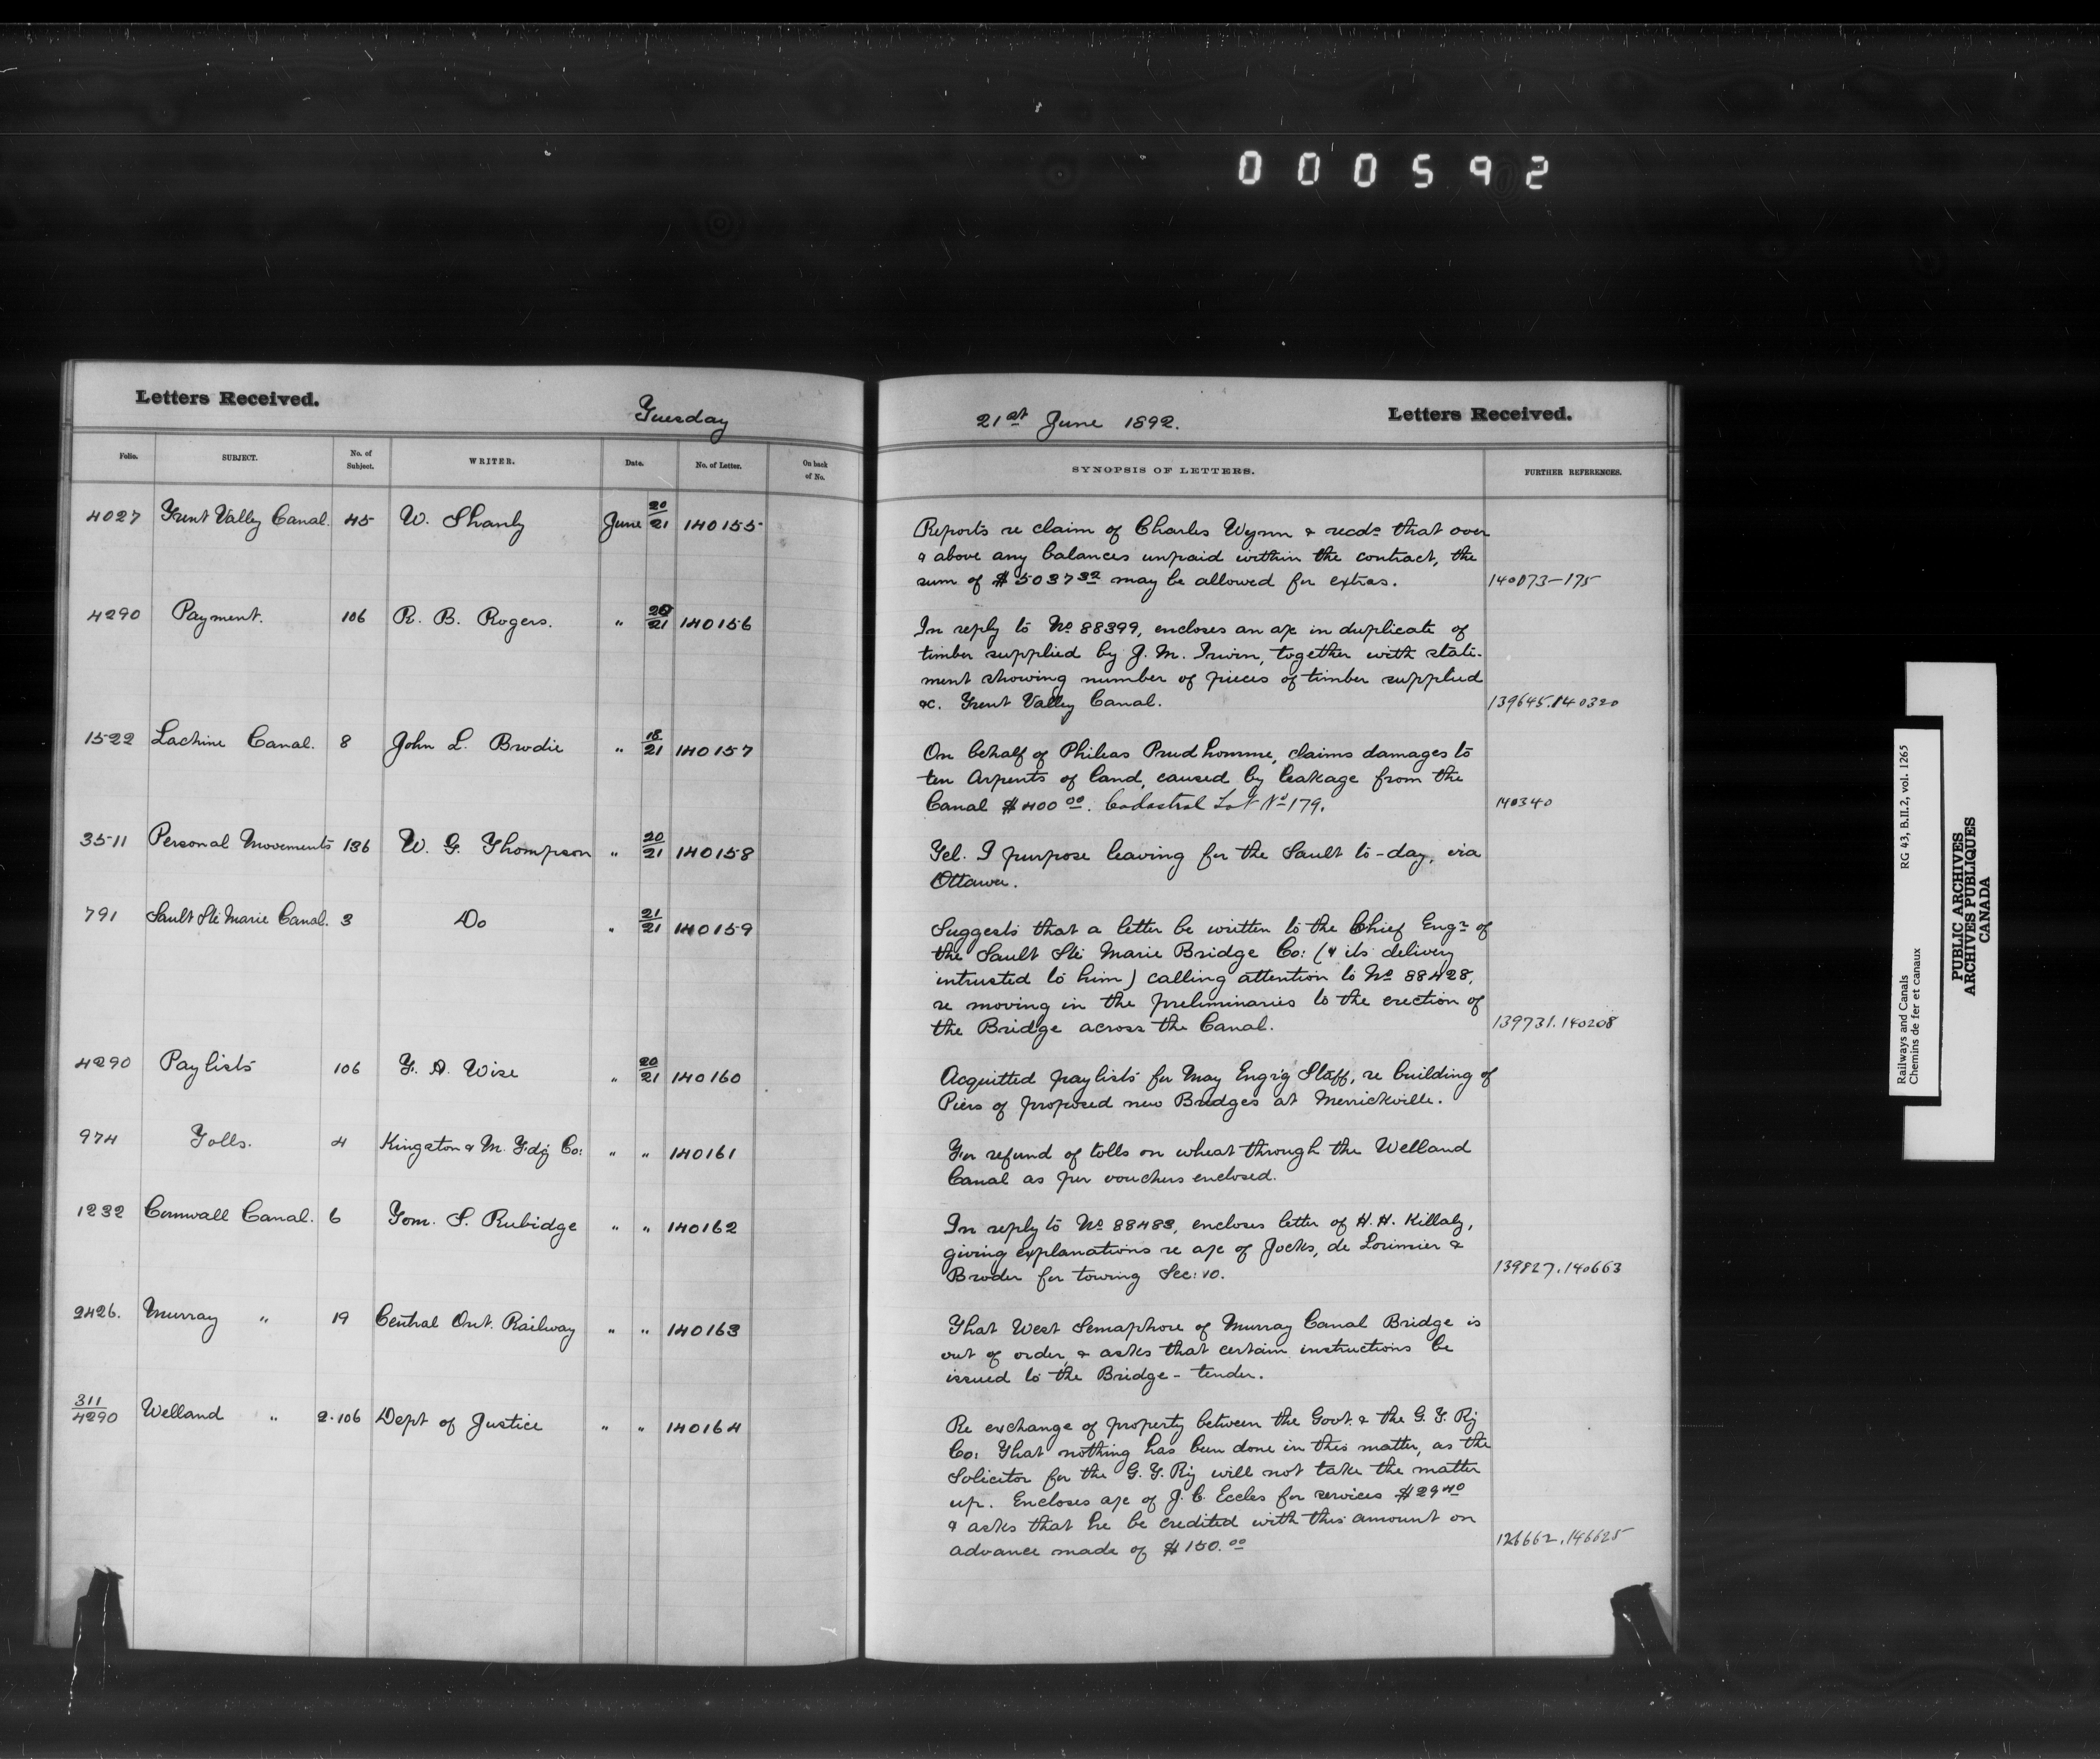 000592
Letters Received.
Tuesday
21st June 1892.
Letters Received.
Folio. SUBJECT. No. of Subject. WRITER. Date. No. of Letter. On back of No.
SYNOPSIS OF LETTERS. FURTHER REFERENCES.
4027 Trent Valley Canal. 45 W. Shanly June 20/21 140155
Reports re claim of Charles Wynn & recds that over
& above any balances unpaid within the contract, the
sum of $5037 32 may be allowed for extras. 140073-175
4290 Payment. 106 R. B. Rogers. " 20/21 140156
In reply to No 88399, encloses an a/c in duplicate of
timber supplied by J. M. Irwin, together with state-
ment showing number of pieces of timber supplied
&c. Trent Valley Canal. 139645.140320
1522 Lachine Canal. 8 John L. Brodie " 18/21 140157
On behalf of Phileas Prudhomme, claims damages to
ten Arpents of land, caused by leakage from the
Canal $400 00. Cadastral Lot No 179. 140340
3511 Personal Movements 136 W. G. Thompson " 20/21 140158
Tel. I purpose leaving for the Sault to-day, via
Ottawa.
791 Sault Ste Marie Canal. 3 Do " 21/21 140159
Suggests that a letter be written to the Chief Engr of
the Sault Ste Marie Bridge Co: (& its delivery
intrusted to him) calling attention to No 88428,
re moving in the preliminaries to the erection of
the Bridge across the Canal. 139731.140208
4290 Paylists 106 F. A. Wise " 20/21 140160
Acquitted paylists for May Eng'g Staff, re building of
Piers of proposed new Bridges at Merrickville.
974 Tolls. 4 Kingston & M. Fdg Co: " " 140161
For refund of tolls on wheat through the Welland
Canal as per vouchers enclosed.
1232 Cornwall Canal. 6 Tom. S. Rubidge " " 140162
In reply to No 88483, encloses letter of H. H. Killaly,
giving explanations re a/c of Jocks, de Lorimier &
Broder for towing Sec: 10. 139827.140663
2426. Murray " 19 Central Ont. Railway " " 140163
That West Semaphore of Murray Canal Bridge is
out of order, & asks that certain instructions be
issued to the Bridge-tender.
311/4290 Welland " 2.106 Dept of Justice " " 140164
Re exchange of property between the Govt. & the G. T. Ry
Co: That nothing has been done in this matter, as the
Solicitor for the G. T. Ry will not take the matter
up. Encloses a/c of J. C. Eccles for services $29 40
& asks that he be credited with this amount on
advance made of $150.00 126662.146625
Railways and Canals RG 43, B.II.2, vol. 1265
Chemins de fer et canaux
PUBLIC ARCHIVES
ARCHIVES PUBLIQUES
CANADA